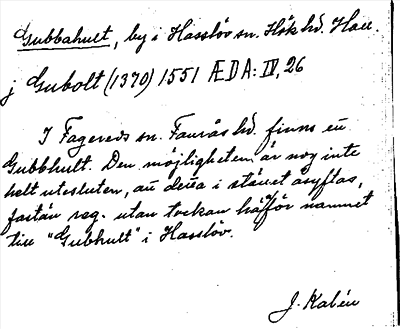 Gubbahult, by i Hasslöv sn. Höks hd. Hall.
j Gubolt (1370) 1551 ÆDA: IV, 26
I Fagereds sn. Faurås hd. finns ett
Gubbhult. Den möjligheten är nog inte
helt utesluten, att detta i stället åsyftas,
fastän reg. utan tvekan håller namnet
till "Gubhult" i Hasslöv.
J. Kalén